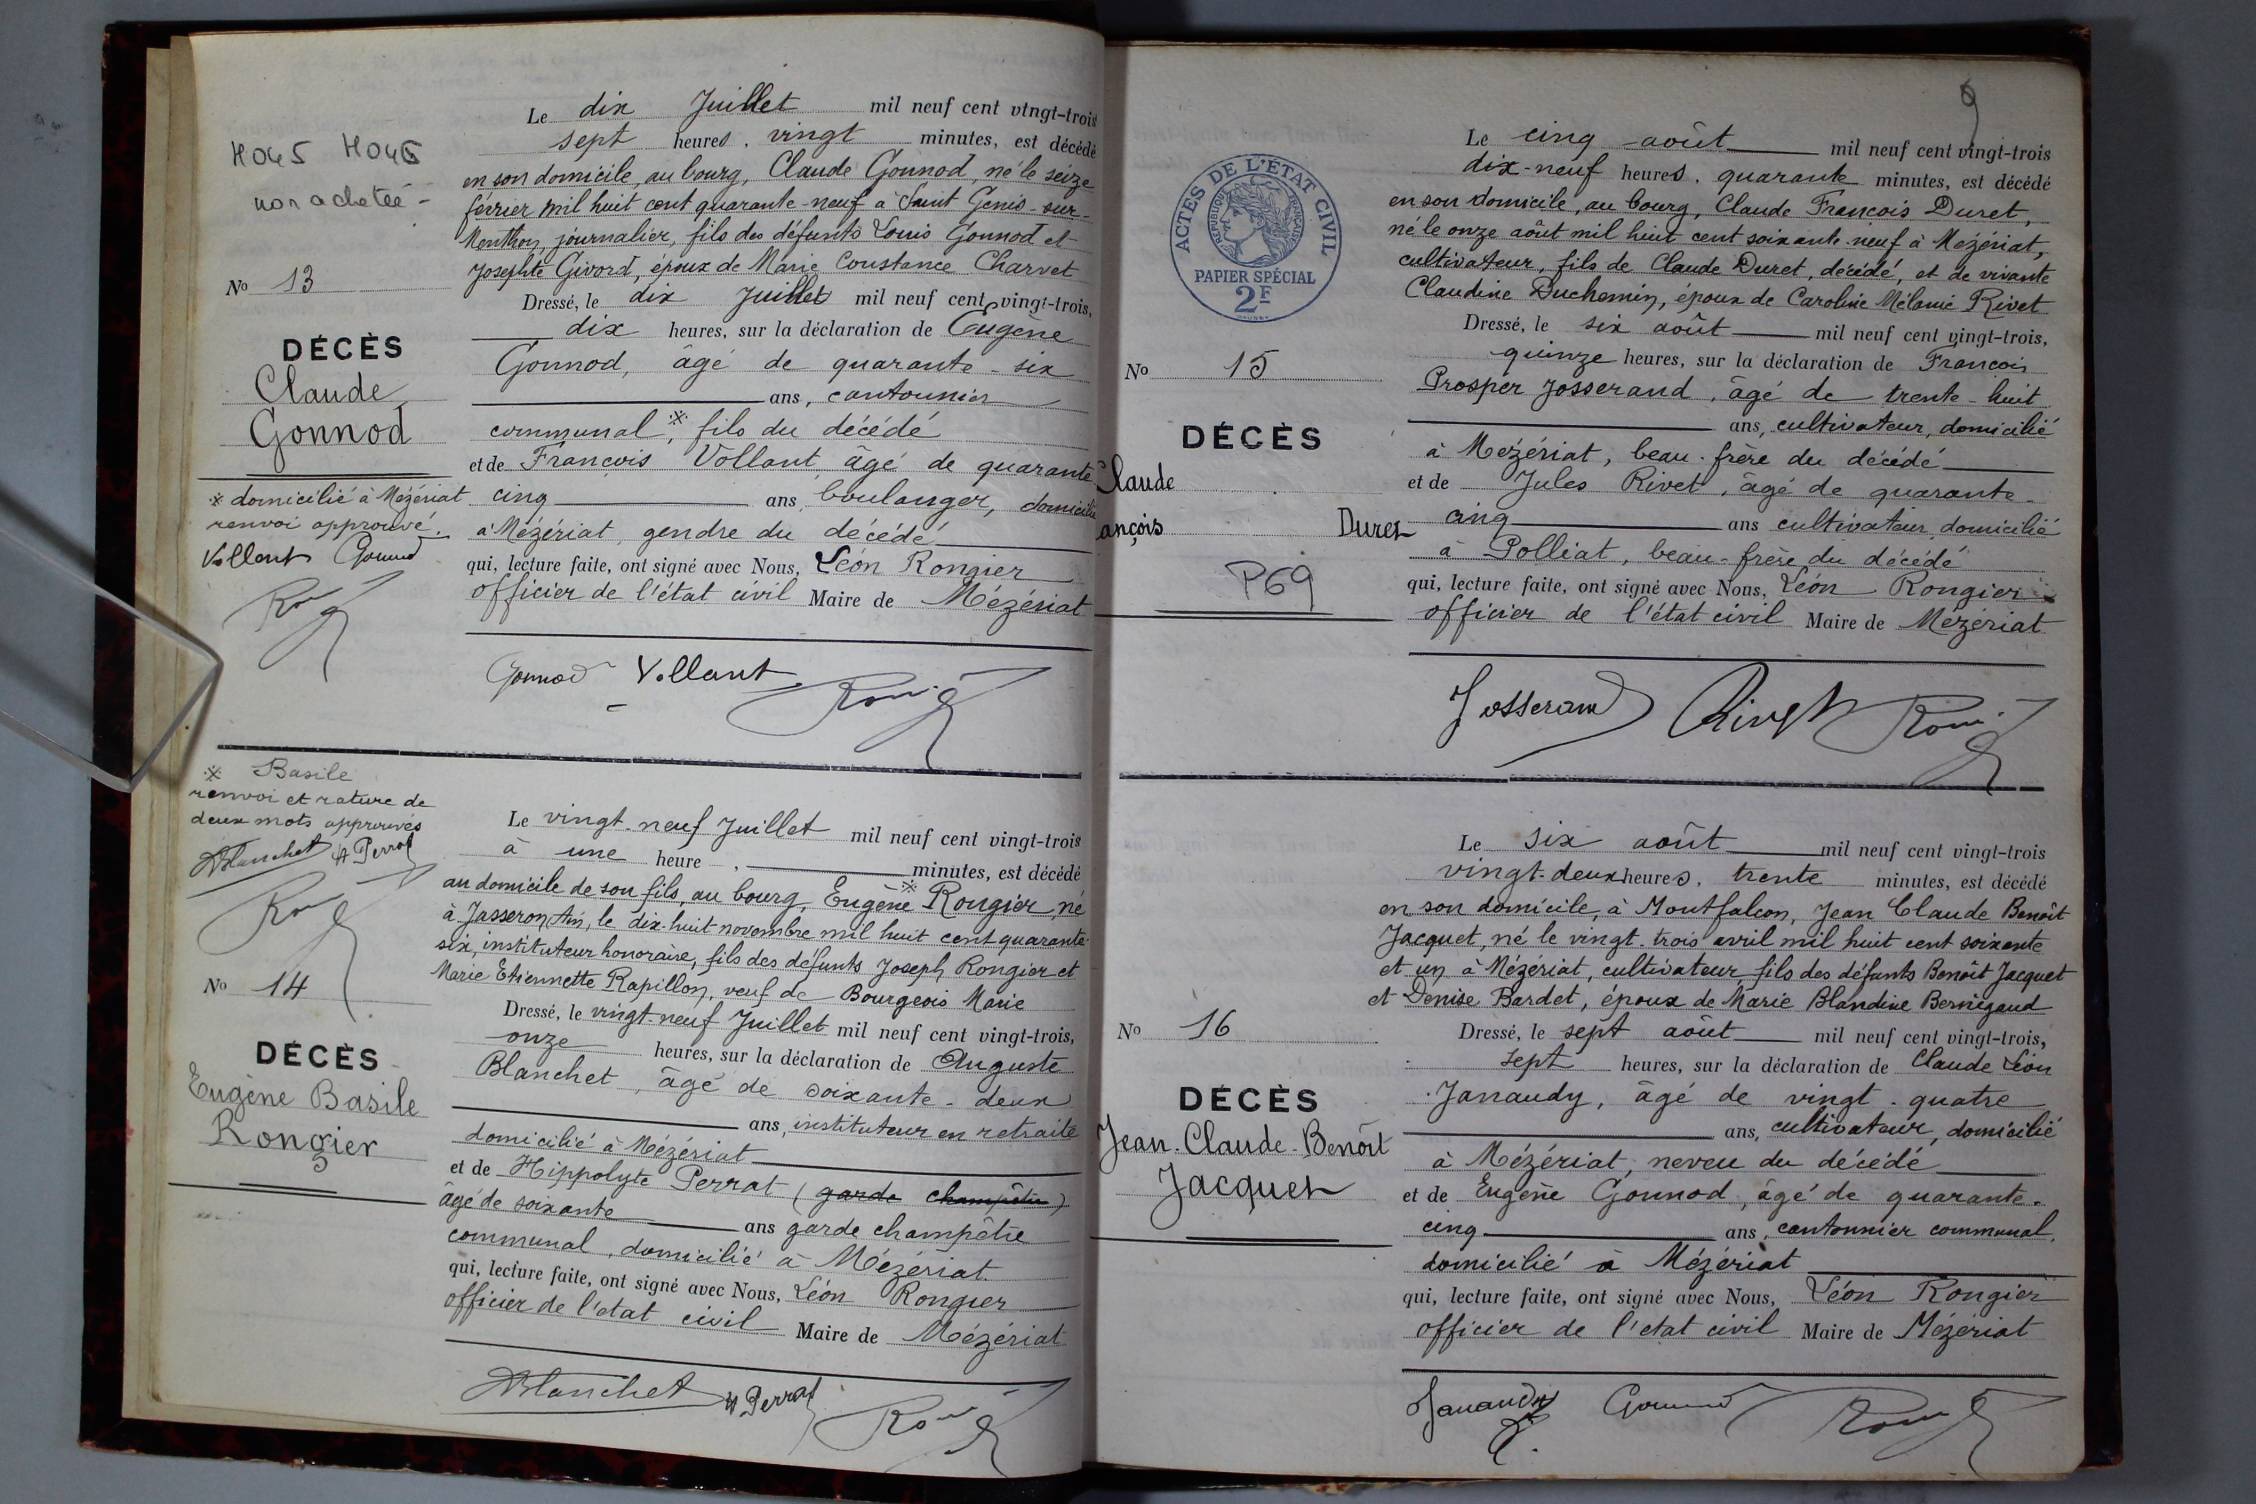 H045 H046
non achetée -
Le dix Juillet mil neuf cent vingt-trois
sept heures, vingt minutes, est décédé
en son domicile, au bourg, Claude Gonnod, né le seize
février mil huit cent quarante-neuf à Saint Genis-sur-
Menthon, journalier, fils des défunts Louis Gonnod et
Josephte Givord, époux de Marie Constance Charvet
Dressé, le dix Juillet mil neuf cent vingt-trois,
dix heures, sur la déclaration de Eugène
Gonnod, âgé de quarante-six
ans, cantonnier
communal ※, fils du décédé
et de François Vollant âgé de quarante
cinq ans, boulanger, domicilié
à Mézériat, gendre du décédé
qui, lecture faite, ont signé avec Nous, Léon Rongier
officier de l'état civil Maire de Mézériat
Gonnod Vollant
No 13
DÉCÈS
Claude
Gonnod
※ domicilié à Mézériat
renvoi approuvé.
Vollant Gonnod
※ Basile
renvoi et rature de
deux mots approuvés
ABlanchet H Perrat
No 14
DÉCÈS
Eugène Basile
Rongier
Le vingt-neuf Juillet mil neuf cent vingt-trois
à une heure, minutes, est décédé
au domicile de son fils, au bourg, Eugène ※ Rongier, né
à Jasseron, Ain, le dix-huit novembre mil huit cent quarante-
six, instituteur honoraire, fils des défunts Joseph Rongier et
Marie Etiennette Rapillon, veuf de Bourgeois Marie
Dressé, le vingt-neuf Juillet mil neuf cent vingt-trois,
onze heures, sur la déclaration de Auguste
Blanchet, âgé de soixante-deux
ans, instituteur en retraite
domicilié à Mézériat
et de Hippolyte Perrat (garde champêtre)
âgé de soixante ans garde champêtre
communal, domicilié à Mézériat
qui, lecture faite, ont signé avec Nous, Léon Rongier
officier de l'état civil Maire de Mézériat
ABlanchet H Perrat
9
ACTES DE L'ÉTAT CIVIL
RÉPUBLIQUE FRANÇAISE
PAPIER SPÉCIAL
2F
No 15
DÉCÈS
Claude
ançois Duret
P69
Le cinq août mil neuf cent vingt-trois
dix-neuf heures, quarante minutes, est décédé
en son domicile, au bourg, Claude François Duret,
né le onze août mil huit cent soixante-neuf à Mézériat,
cultivateur, fils de Claude Duret, décédé, et de vivante
Claudine Duchemin, époux de Caroline Mélanie Rivet
Dressé, le six août mil neuf cent vingt-trois,
quinze heures, sur la déclaration de François
Prosper Josserand, âgé de trente-huit
ans, cultivateur, domicilié
à Mézériat, beau-frère du décédé
et de Jules Rivet, âgé de quarante-
cinq ans cultivateur, domicilié
à Polliat, beau-frère du décédé
qui, lecture faite, ont signé avec Nous, Léon Rongier
officier de l'état civil Maire de Mézériat
Josserand Rivet
No 16
DÉCÈS
Jean-Claude-Benoît
Jacquet
Le six août mil neuf cent vingt-trois
vingt-deux heures, trente minutes, est décédé
en son domicile, à Montfalcon, Jean Claude Benoît
Jacquet, né le vingt-trois avril mil huit cent soixante
et un à Mézériat, cultivateur, fils des défunts Benoît Jacquet
et Denise Bardet, époux de Marie Blandine Bernigaud
Dressé, le sept août mil neuf cent vingt-trois,
sept heures, sur la déclaration de Claude Léon
Janaudy, âgé de vingt-quatre
ans, cultivateur, domicilié
à Mézériat, neveu du décédé
et de Eugène Gonnod, âgé de quarante-
cinq ans, cantonnier communal,
domicilié à Mézériat
qui, lecture faite, ont signé avec Nous, Léon Rongier
officier de l'état civil Maire de Mézériat
Janaudy Gonnod